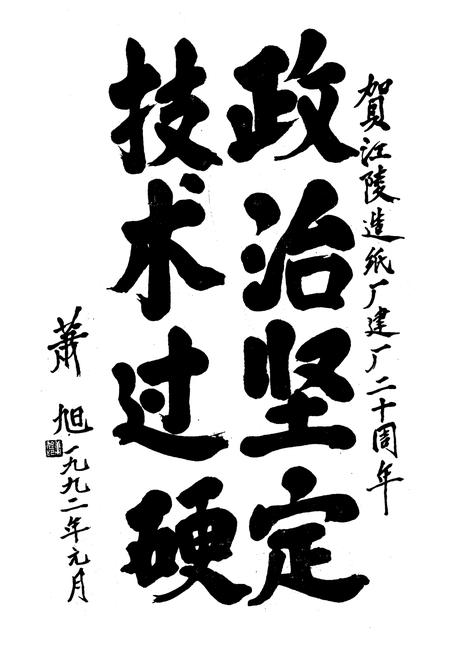 賀江陵造纸厂建厂二十周年
政治坚定
技术过硬
萧旭
一九九二年元月